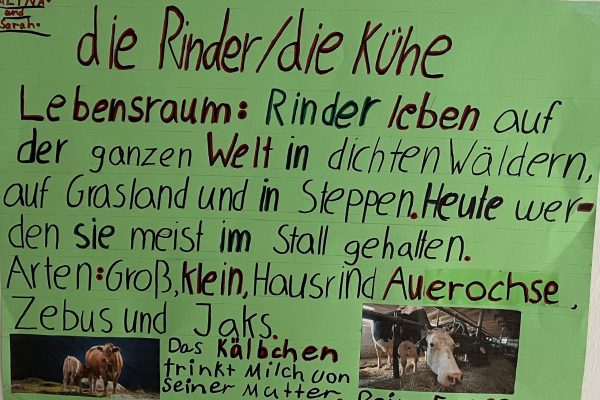 ALINA.
and
Sarah.
die Rinder/die Kühe
Lebensraum: Rinder leben auf
der ganzen Welt in dichten Wäldern,
auf Grasland und in Steppen. Heute wer-
den sie meist im Stall gehalten.
Arten: Groß, klein, Hausrind Auerochse,
Zebus und Jaks.
Das Kälbchen
trinkt Milch von
seiner Mutter.